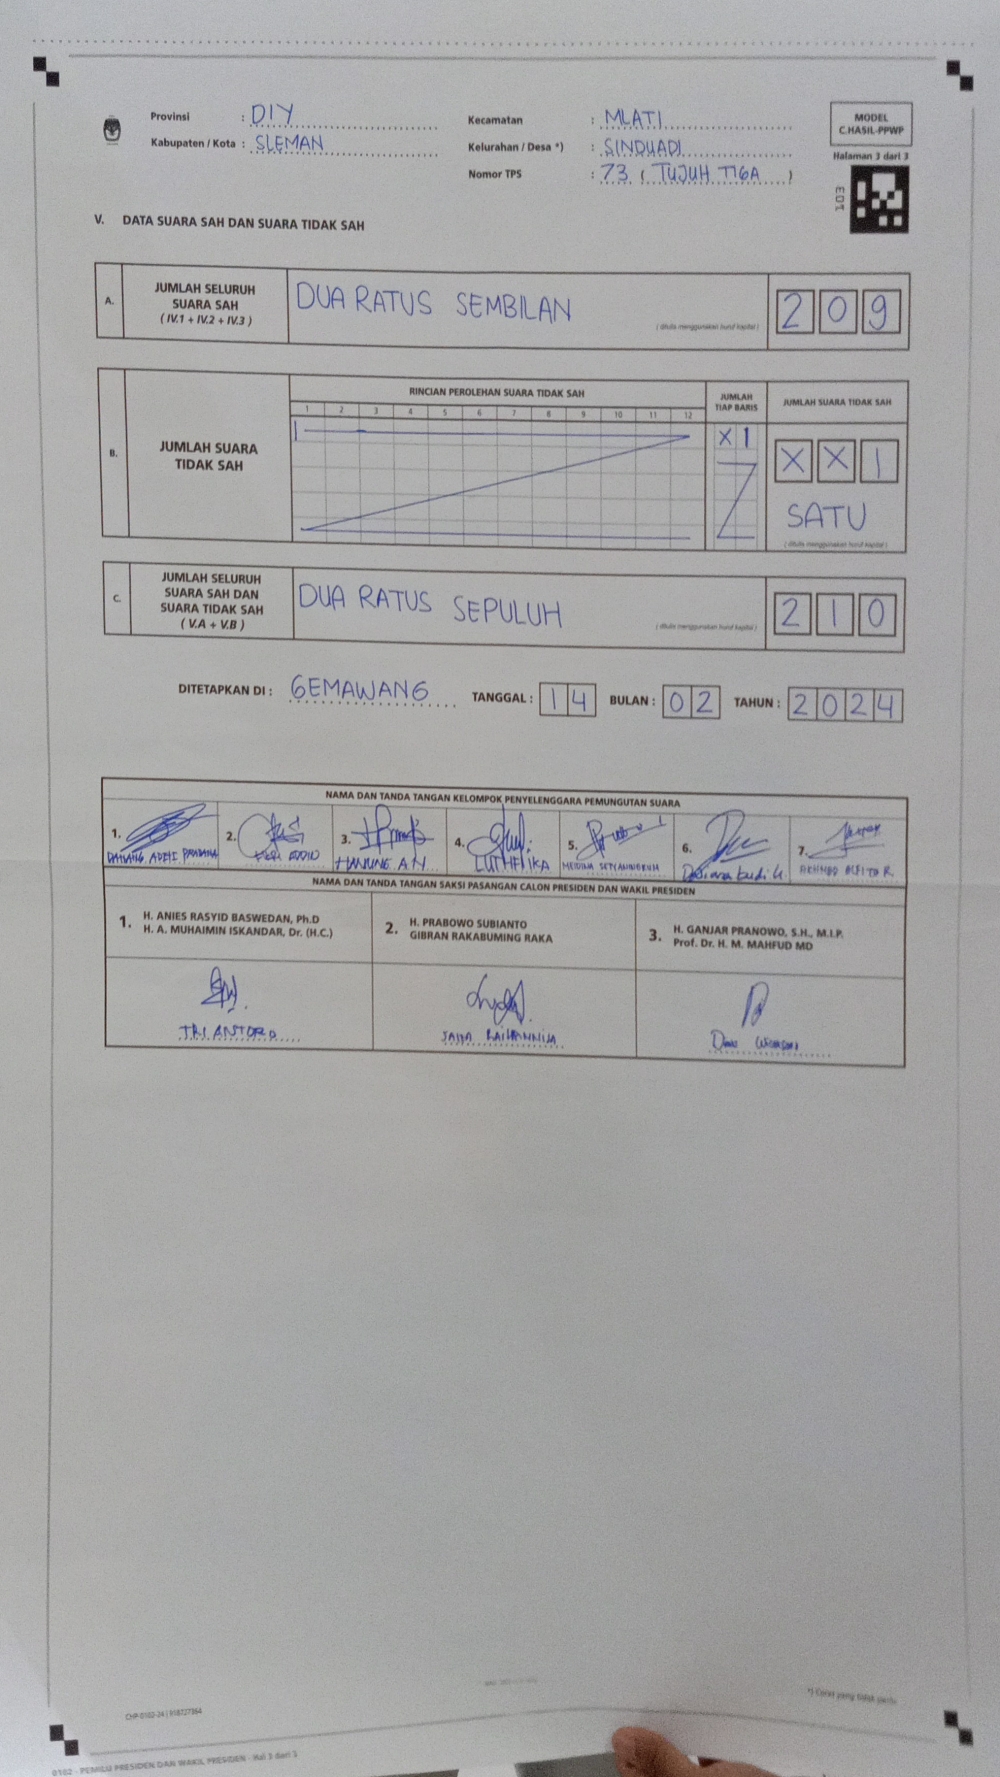 Provinsi : DIY
Kabupaten / Kota : SLEMAN
Kecamatan : MLATI
Kelurahan / Desa *) : SINDUADI
Nomor TPS : 73 ( TUJUH TIGA )
MODEL
C.HASIL-PPWP
Halaman 3 dari 3
V. DATA SUARA SAH DAN SUARA TIDAK SAH
A. JUMLAH SELURUH SUARA SAH ( IV.1 + IV.2 + IV.3 ) DUA RATUS SEMBILAN 2 0 9
( ditulis menggunakan huruf kapital )
RINCIAN PEROLEHAN SUARA TIDAK SAH
JUMLAH TIAP BARIS
JUMLAH SUARA TIDAK SAH
1 2 3 4 5 6 7 8 9 10 11 12
B. JUMLAH SUARA TIDAK SAH
X 1
X X 1
SATU
( ditulis menggunakan huruf kapital )
C. JUMLAH SELURUH SUARA SAH DAN SUARA TIDAK SAH ( V.A + V.B ) DUA RATUS SEPULUH 2 1 0
( ditulis menggunakan huruf kapital )
DITETAPKAN DI : GEMAWANG TANGGAL : 14 BULAN : 02 TAHUN : 2024
NAMA DAN TANDA TANGAN KELOMPOK PENYELENGGARA PEMUNGUTAN SUARA
1. 2. 3. 4. 5. 6. 7.
HANUNG AN
NAMA DAN TANDA TANGAN SAKSI PASANGAN CALON PRESIDEN DAN WAKIL PRESIDEN
1. H. ANIES RASYID BASWEDAN, Ph.D
H. A. MUHAIMIN ISKANDAR, Dr. (H.C.)
2. H. PRABOWO SUBIANTO
GIBRAN RAKABUMING RAKA
3. H. GANJAR PRANOWO, S.H., M.I.P.
Prof. Dr. H. M. MAHFUD MD
TRI ANTORO
*) Coret yang tidak perlu
0102 - PEMILU PRESIDEN DAN WAKIL PRESIDEN - Hal 3 dari 3